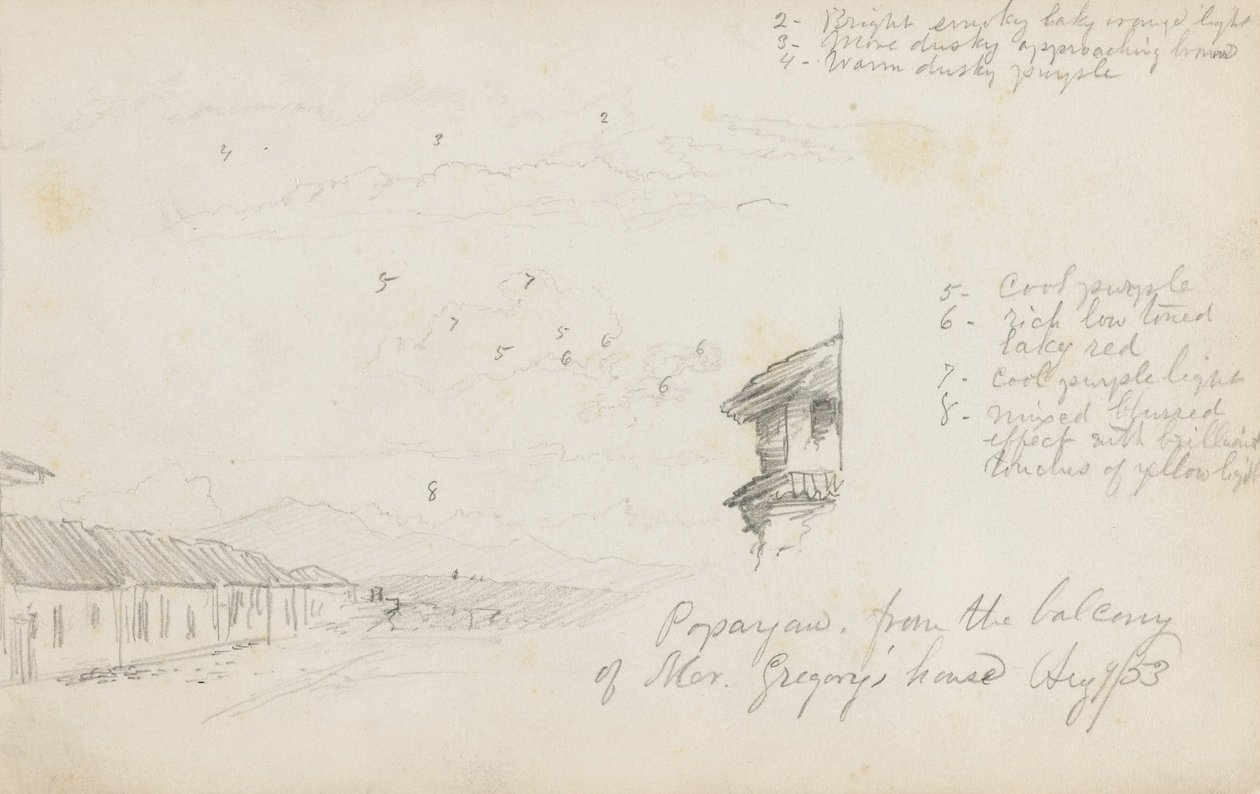 2- Bright smoky laky orange light
3- More dusky approaching brown
4- Warm dusky purple
4
3
2
5
7
7
5
6
5
6
6
6
5- Cool purple
6- rich low toned
laky red
7- cool purple light
8- mixed blurred
effect with brilliant
touches of yellow light
8
Popayan. from the balcony
of Mr. Gregory's house Aug/53